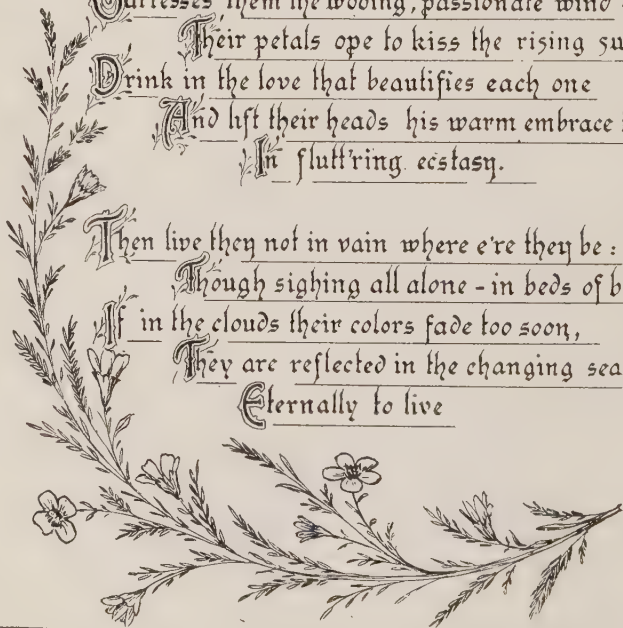 Caresses them the wooing, passionate wind
Their petals ope to kiss the rising su
Drink in the love that beautifies each one
And lift their heads his warm embrace
In flutt'ring ecstasy.
Then live they not in vain where e're they be :
Though sighing all alone - in beds of b
If in the clouds their colors fade too soon,
They are reflected in the changing sea
Eternally to live